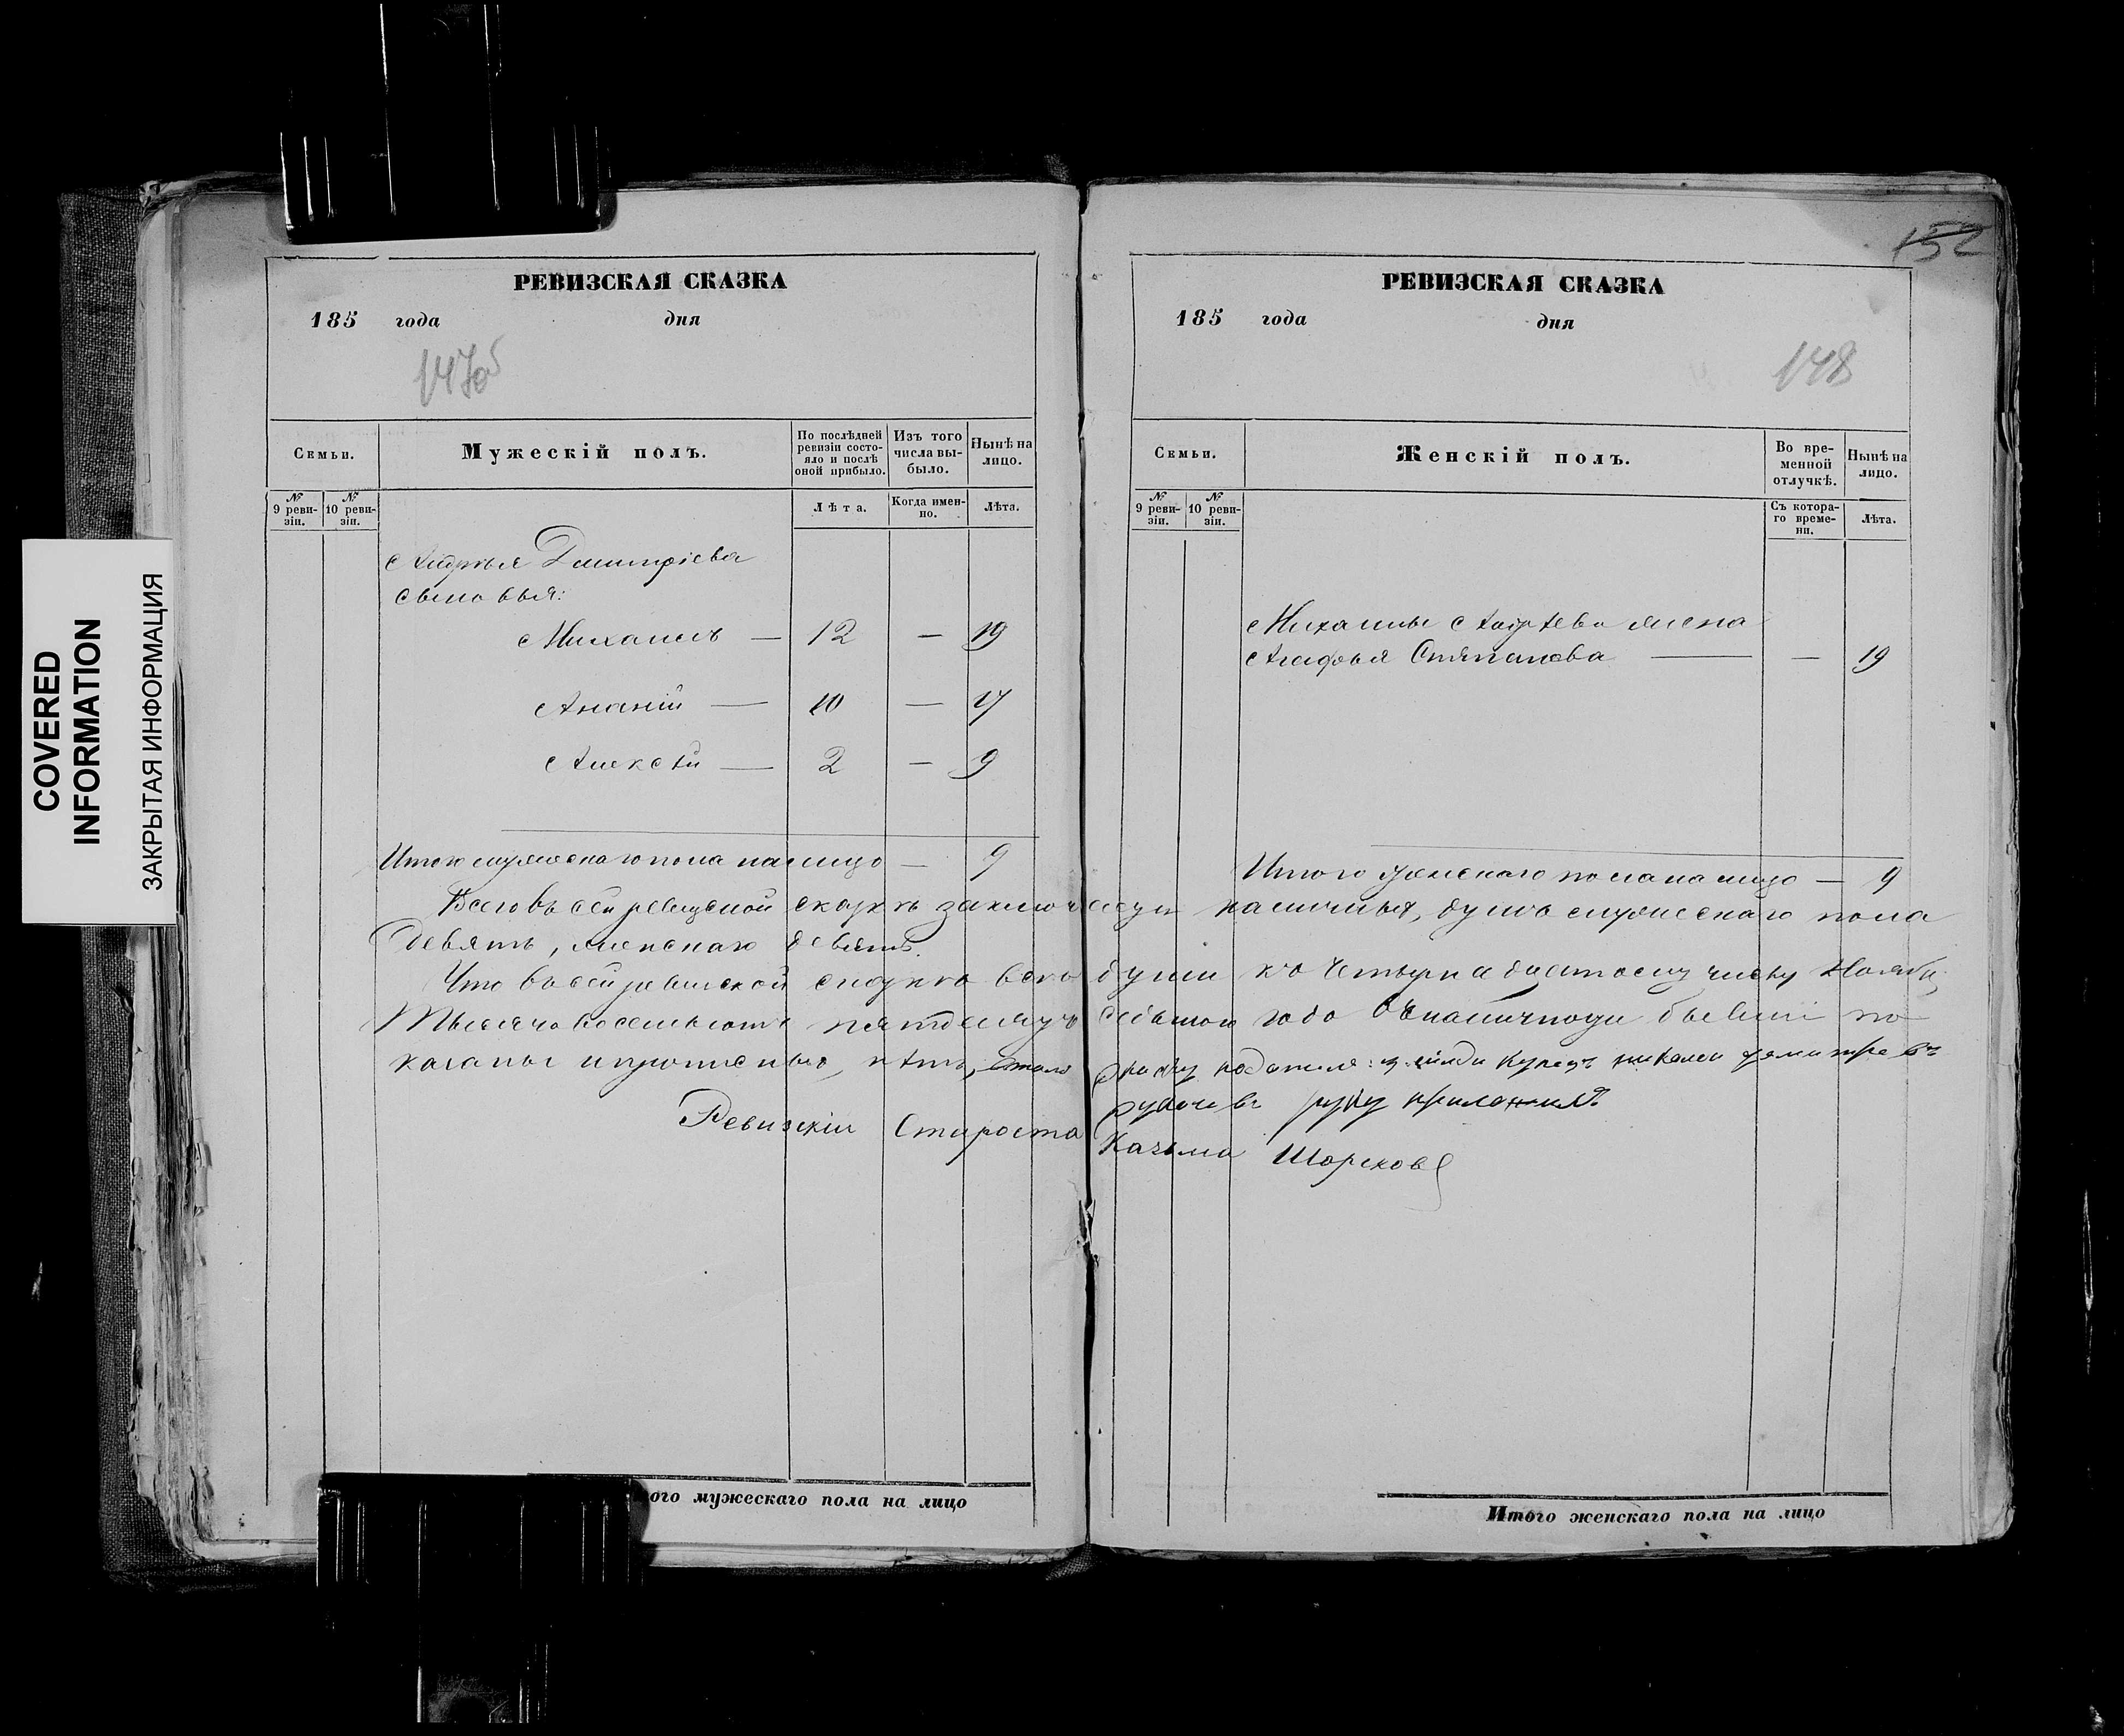 COVERED
INFORMATION
ЗАКРЫТАЯ ИНФОРМАЦИЯ
РЕВИЗСКАЯ СКАЗКА
185 года дня
147об
Семьи.
Мужескій полъ.
По послѣдней ревизіи состояло и послѣ оной прибыло.
Изъ того числа выбыло.
Нынѣ на лицо.
№ 9 ревизіи.
№ 10 ревизіи.
Лѣта.
Когда именно.
Лѣта.
Андрея Дмитріева
сыновья:
Михаилъ — 12 — 19
Ананій — 10 — 17
Алексѣй — 2 — 9
Итого мужескаго пола на лицо — 9
ого мужескаго пола на лицо
152
РЕВИЗСКАЯ СКАЗКА
185 года дня
148
Семьи.
Женскій полъ.
Во временной отлучкѣ.
Нынѣ на лицо.
№ 9 ревизіи.
№ 10 ревизіи.
Съ котораго времени.
Лѣта.
Михаилы Андрѣева жена
Агафья Степанова — — 19
Итого женскаго пола на лицо — 9
Всего въ сей ревизской сказкѣ заключается наличныхъ, душъ мужескаго пола
девять, женскаго девять.
Что въ сей ревизской сказкѣ всѣ души къ четырнадцатому числу Ноября
Тысяча восемьсотъ пятдесятъ седьмого года въ наличности бывшіи по
казаны и прописныхъ нѣтъ,
руку приложилъ
Ревизскій Староста Казьма Шорсковъ
Итого женскаго пола на лицо